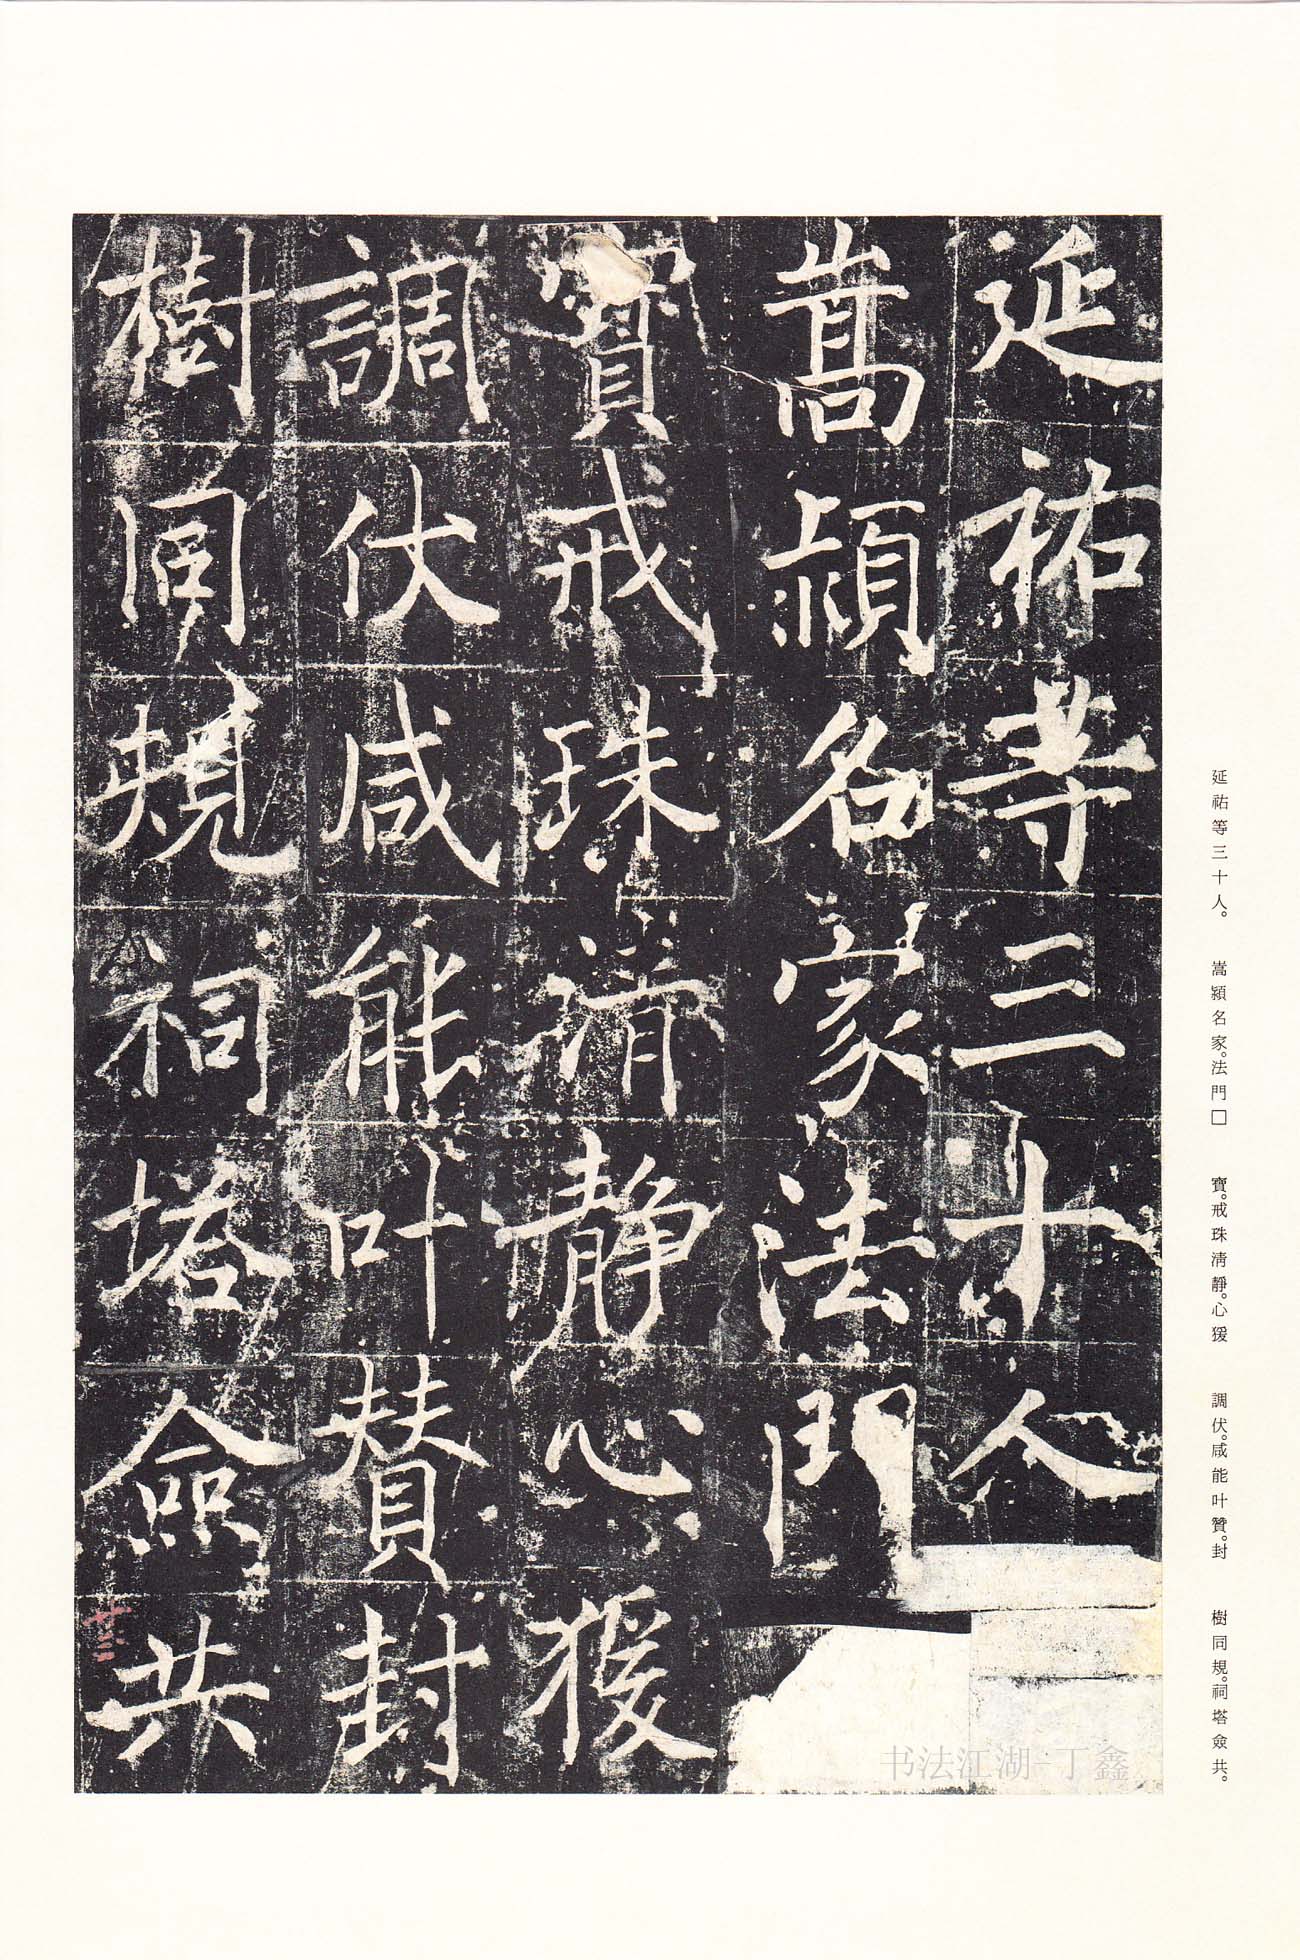 延祐等三十人
嵩潁名家法門
寶戒珠清靜心猨
調伏咸能叶贊封
樹同規祠塔僉共
廿三
延祐等三十人。嵩潁名家。法門□寶。戒珠清靜。心猨調伏。咸能叶贊。封樹同規。祠塔僉共。
书法江湖-丁鑫